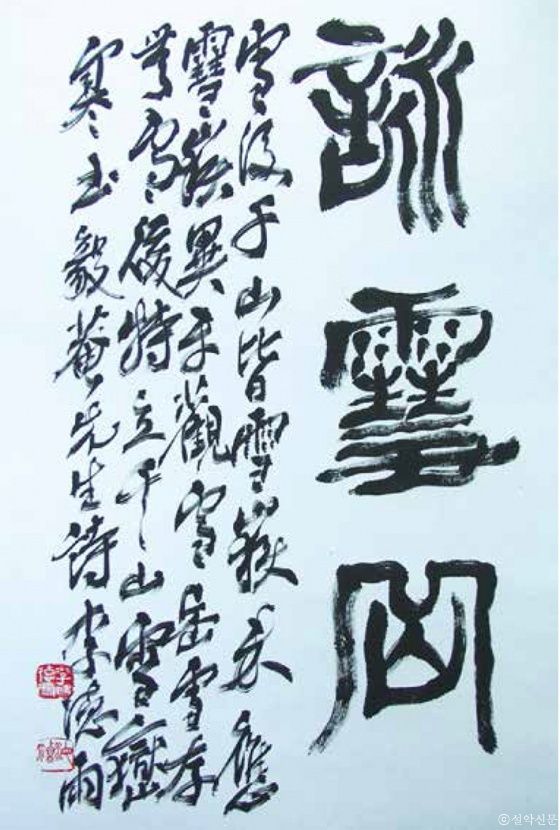 詠雪岳
雪後千山皆雪嶽未應
雪嶽異平觀雪岳雪存
無雪後特立千山雪嶽
寒 毅菴先生詩 李德雨
ⓒ설악신문